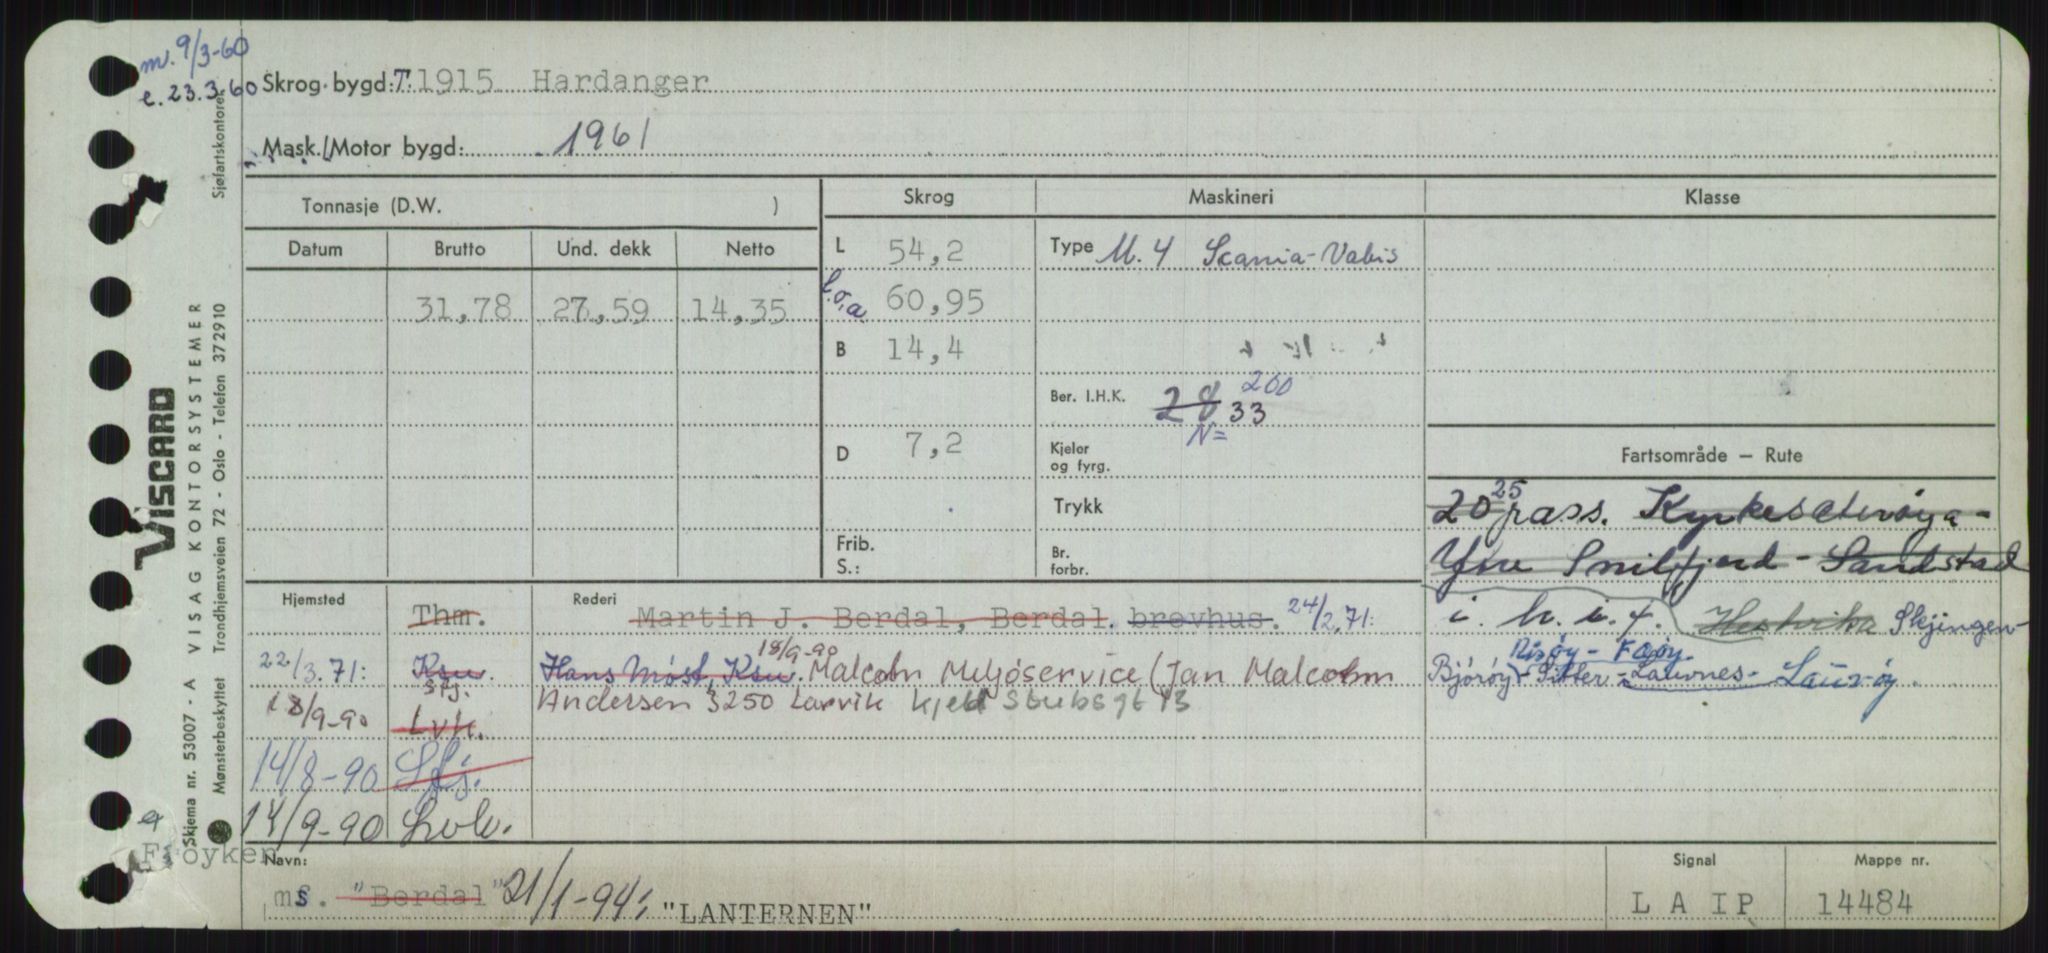 m. 9/3-60
e. 23.3.60
Skrog bygd: T. 1915 Hardanger
Mask./Motor bygd: 1961
Sjøfartskontoret
Tonnasje (D.W. )
Skrog
Maskineri
Klasse
Datum Brutto Und. dekk Netto
31,78 27,59 14,35
L 54,2
l.o.a. 60,95
B 14,4
D 7,2
Frib.
S.:
Type M. 4 Scania-Vabis
Ber. I.H.K. 28 33 260
N=
Kjeler
og fyrg.
Trykk
Br.
forbr.
Fartsområde – Rute
20 25 pass. Kyrkesæterøya -
Ytre Snilfjord - Sandstad
i. h. i. f. Hestvika Skjingen-
Risøy - Fosøy.
Bjørøy - Sitter - Lauvnes - Lauvøy.
Hjemsted
Rederi
Thm. Martin J. Berdal, Berdal. brevhus. 24/2.71:
22/3.71: Ksu. Hans Møst, Ksu. 18/9-90 Malcolm Miljøservice (Jan Malcolm
Sfj.
18/9-90 Lvk. Andersen 3250 Larvik Kjeld Stubsgt 13
14/8-90 Sfj.
14/9-90 Lvk.
Frøyken
Navn:
ms. "Berdal" 21/1-94: "LANTERNEN"
Signal
L A I P
Mappe nr.
14484
VISCARD
VISAG KONTORSYSTEMER
Trondhjemsveien 72 - Oslo - Telefon 372910
Skjema nr. 53007 - A
Mønsterbeskyttet